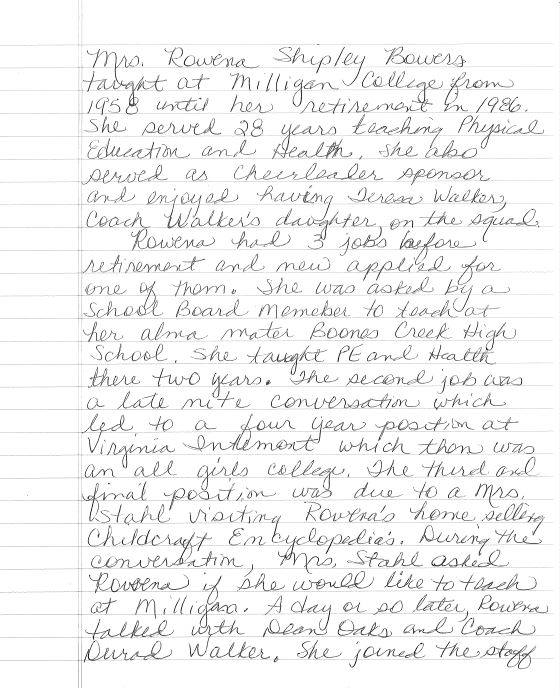 Mrs. Rowena Shipley Bowers
taught at Milligan College from
1958 until her retirement in 1986.
She served 28 years teaching Physical
Education and Health. She also
served as Cheerleader sponsor
and enjoyed having Teresa Walker,
Coach Walker's daughter, on the squad.
Rowena had 3 jobs before
retirement and new applied for
one of them. She was asked by a
School Board Memeber to teach at
her alma mater Boones Creek High
School. She taught PE and Health
there two years. The second job was
a late nite conversation which
led to a four year position at
Virginia Intemont which then was
an all girls college. The third and
final position was due to a Mrs.
Stahl visiting Rowena's home selling
Childcraft Encyclopedia's. During the
conversation, Mrs. Stahl asked
Rowena if she would like to teach
at Milligan. A day or so later, Rowena
talked with Dean Oaks and Coach
Durad Walker. She joined the staff